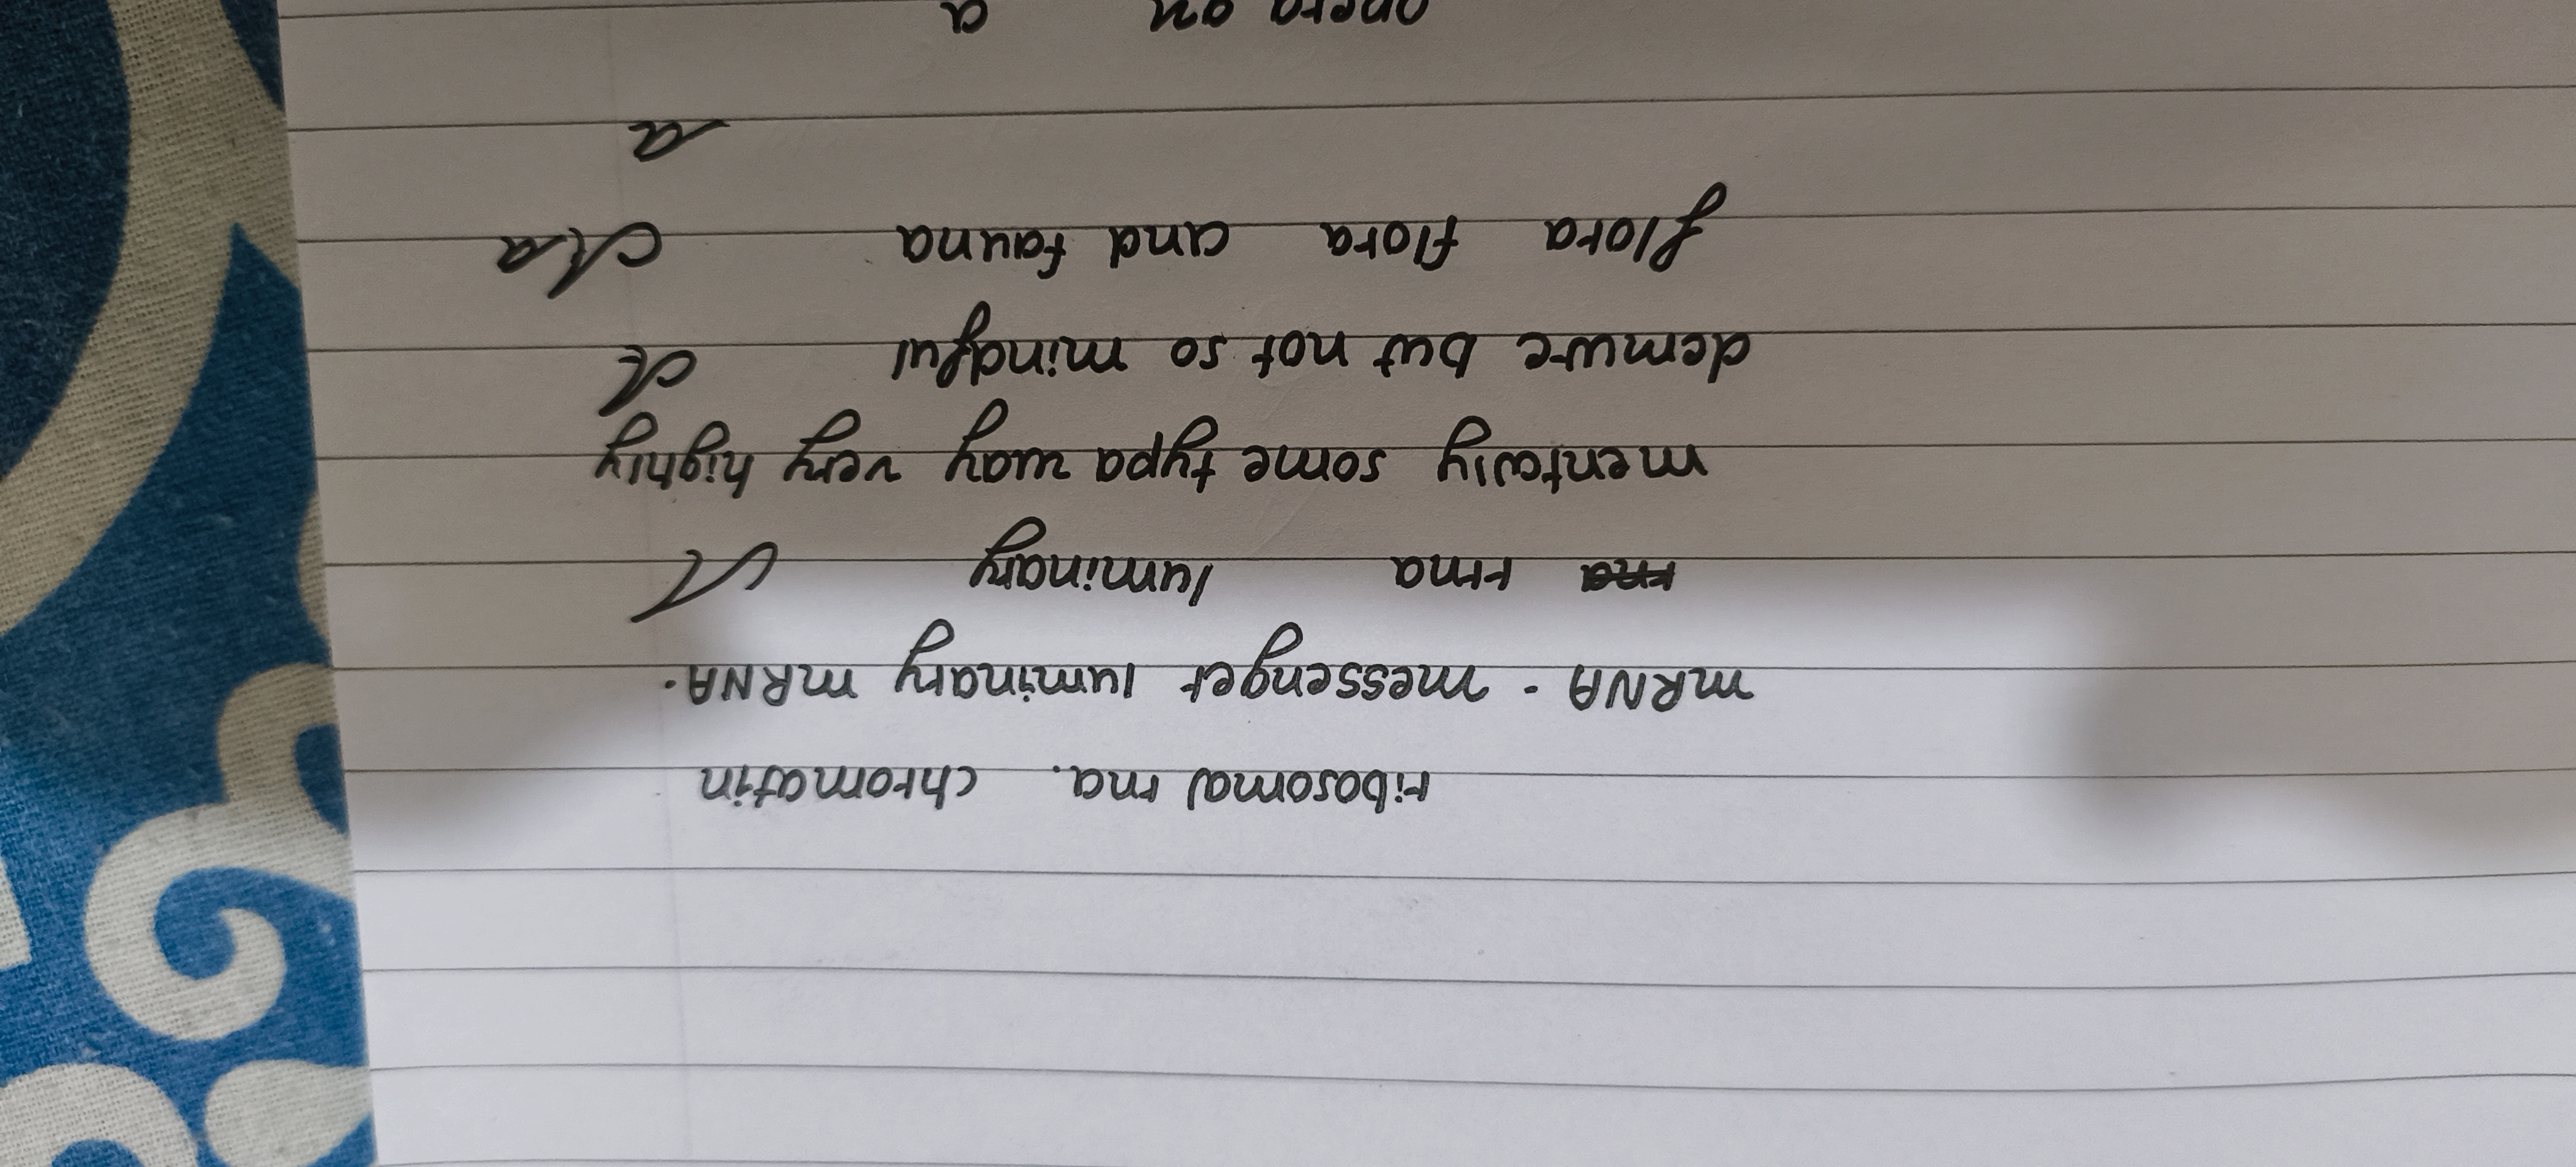 ribosomal rna. chromatin
mRNA - messenger luminary mRNA.
rrna luminary
mentally some typa way very highly
demure but not so mindful
flora flora and fauna
a
opera a